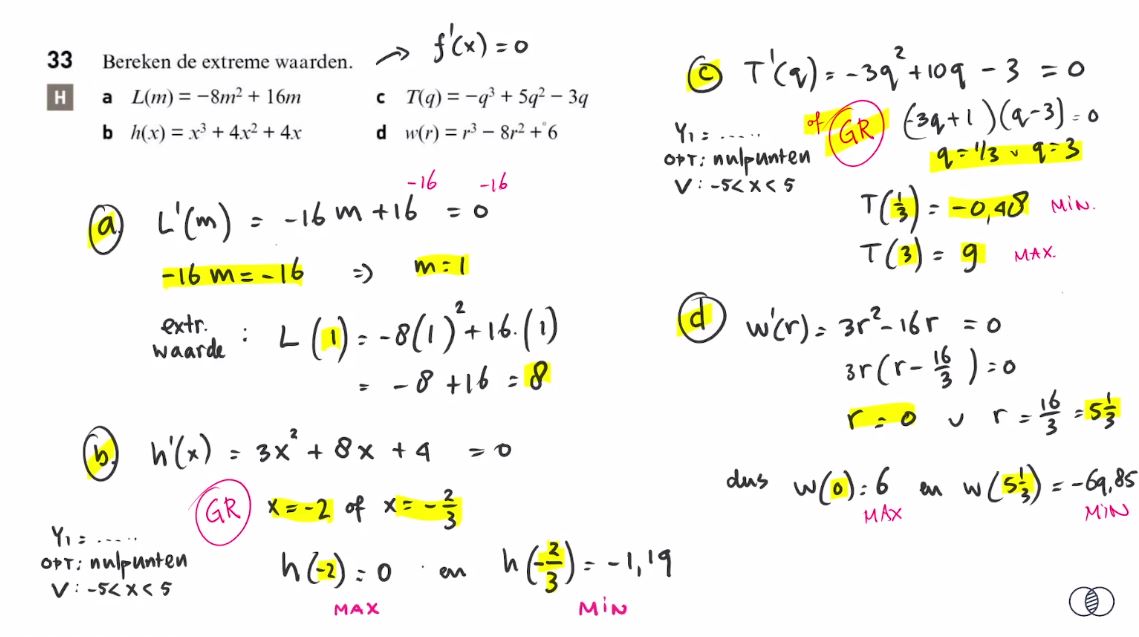 33 Bereken de extreme waarden. → f'(x) = 0
H a L(m) = −8m² + 16m c T(q) = −q³ + 5q² − 3q
b h(x) = x³ + 4x² + 4x d w(r) = r³ − 8r² + 6
-16 -16
a. L'(m) = -16m + 16 = 0
-16m = -16 => m = 1
extr. waarde : L(1) = -8(1)² + 16·(1)
= -8 + 16 = 8
b. h'(x) = 3x² + 8x + 4 = 0
GR x = -2 of x = -2/3
Y1 = .....
OPT: nulpunten
V: -5 < x < 5
h(-2) = 0 en h(-2/3) = -1,19
MAX MIN
c T'(q) = -3q² + 10q - 3 = 0
of GR (-3q+1)(q-3) = 0
Y1 = .....
OPT: nulpunten
V: -5 < x < 5
q = 1/3 v q = 3
T(1/3) = -0,48 MIN.
T(3) = 9 MAX.
d w'(r) = 3r² - 16r = 0
3r(r - 16/3) = 0
r = 0 v r = 16/3 = 5 1/3
dus w(0) = 6 en w(5 1/3) = -69,85
MAX MIN